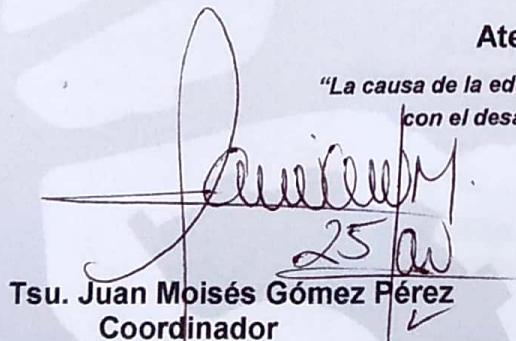 Ate
“La causa de la ed
con el desa
25
Tsu. Juan Moisés Gómez Pérez
Coordinador